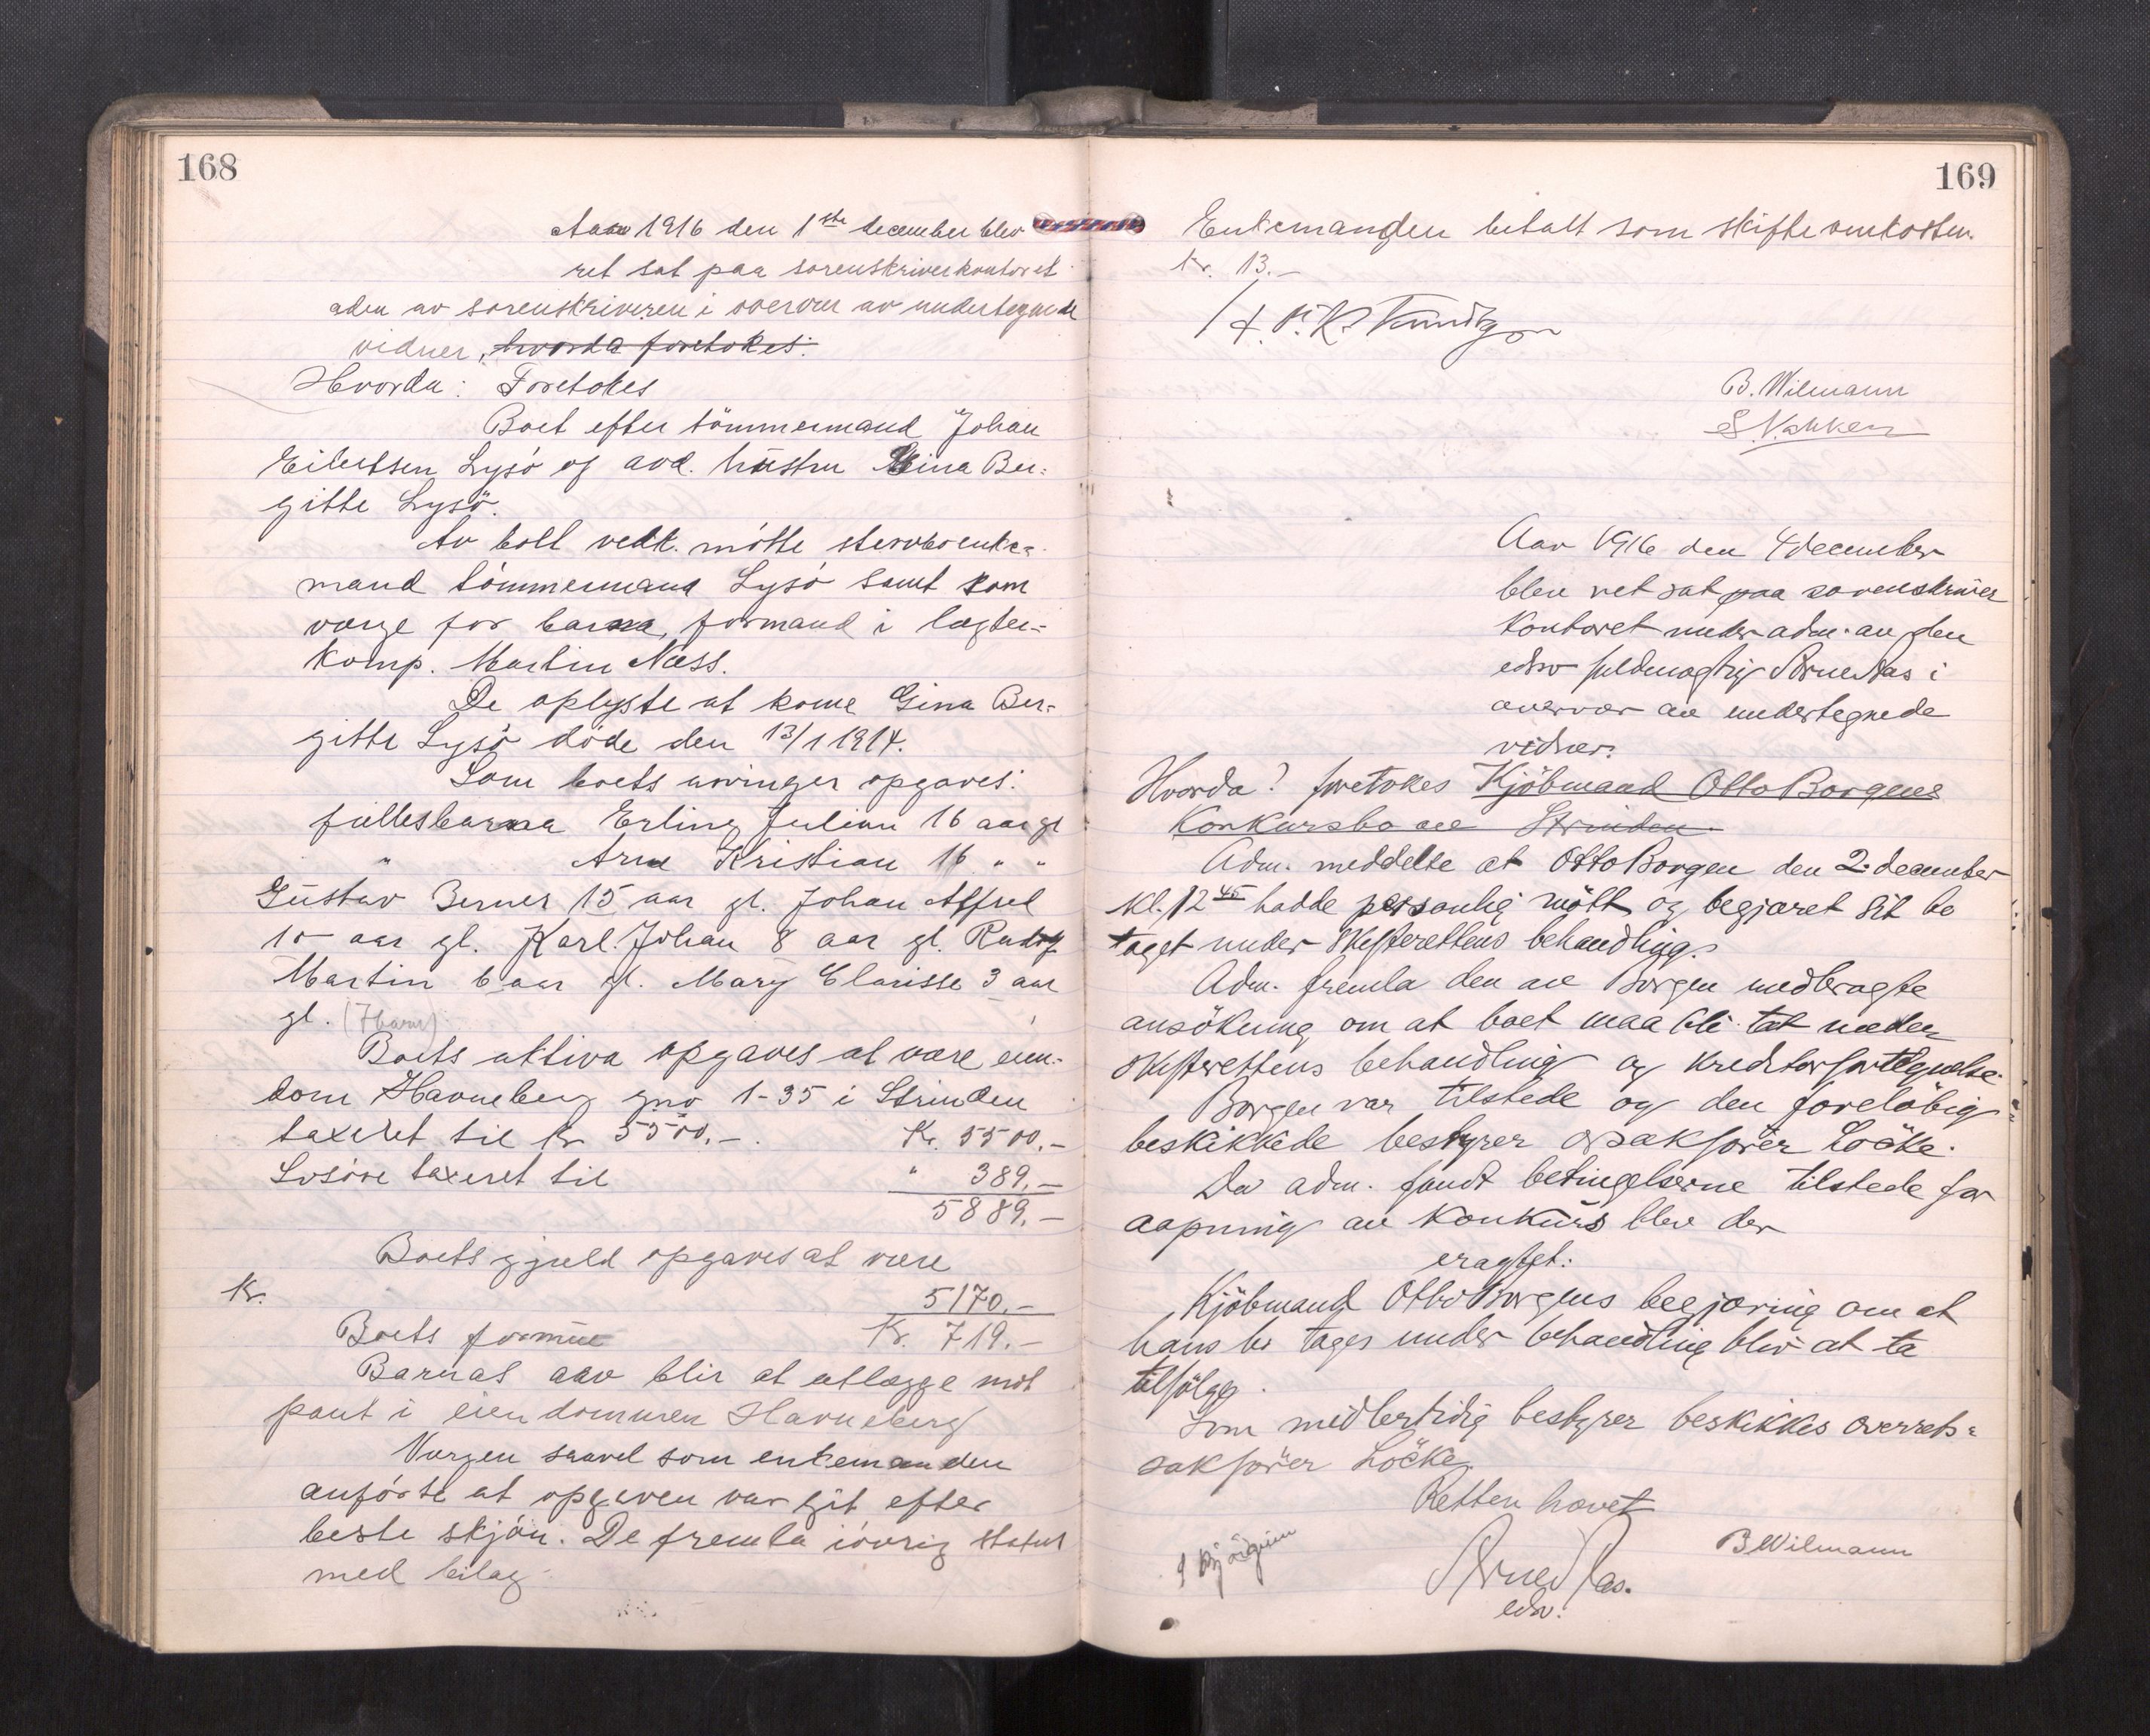 168
Aar 1916 den 1ste december blev
ret sat paa sorenskriverkontoret
adm av sorenskriveren i overvær av undertegnede
vidner, hvorda foretokes:
Hvorda: Foretokes
Boet efter tömmermand Johan
Eilertsen Lysö og avd. hustru Gina Ber-
gitte Lysö.
Av boet vedk. mötte stervboenke-
mand tömmermand Lysö samt som
verge for barna, formand i lagter-
komp. Martin Næss.
De oplyste at kone Gina Ber-
gitte Lysö döde den 13/1 1914.
Som boets arvinger opgaves:
fællesbarna Erling Julian 16 aar gl
" Arne Kristian 16 " "
Gustav Berner 15 aar gl. Johan Alfred
10 aar gl. Karl Johan 8 aar gl. Rudolf
Martin 6 aar gl. Mary Clarisse 3 aar
gl. (7 barn)
Boets aktiva opgaves at være eien-
dom Havneberg gno 1-35 i Strinden
taxeret til kr 5500.-. Kr. 5500.-
Lösöre taxeret til " 389.-
5889.-
Boets gjæld opgaves at være
Kr. 5170.-
Boets formue Kr. 719.-
Barnas arv blir at utlægge mot
pant i eiendommen Havneberg
Vergen saavel som enkemanden
anförte at opgaven var git efter
beste skjön. De fremla iövrig status
med bilag
169
Enkemanden betalt som skifteomkostn.
kr. 13.-
B. Wilmann
Aar 1916 den 4 december
blev ret sat paa sorenskriver
kontoret under adm. av den
edsv fuldmægtig Arne Aas i
overvær av undertegnede
vidner.
Hvorda? foretokes Kjöbmand Otto Borgens
Konkursbo av Strinden.
Adm. meddelte at Otto Borgen den 2. december
kl. 12 45 hadde personlig mött og begjæret sit bo
taget under skifterettens behandling.
Adm. fremla den av Borgen medbragte
ansökning om at boet maa bli tat under
skifterettens behandling og kreditorfortegnelse.
Borgen var tilstede og den forelöbig
beskikkede bestyrer orsakförer Löcke.
Da adm. fandt betingelserne tilstede for
aapning av konkurs blev der
eragtet:
Kjöbmand Otto Borgens begjæring om at
hans bo tages under behandling blir at ta
tilfölge.
Som midlertidig bestyrer beskikkes overrets-
sakförer Löcke.
Retten hævet
B Wilmann
Arne Aas.
edsv.